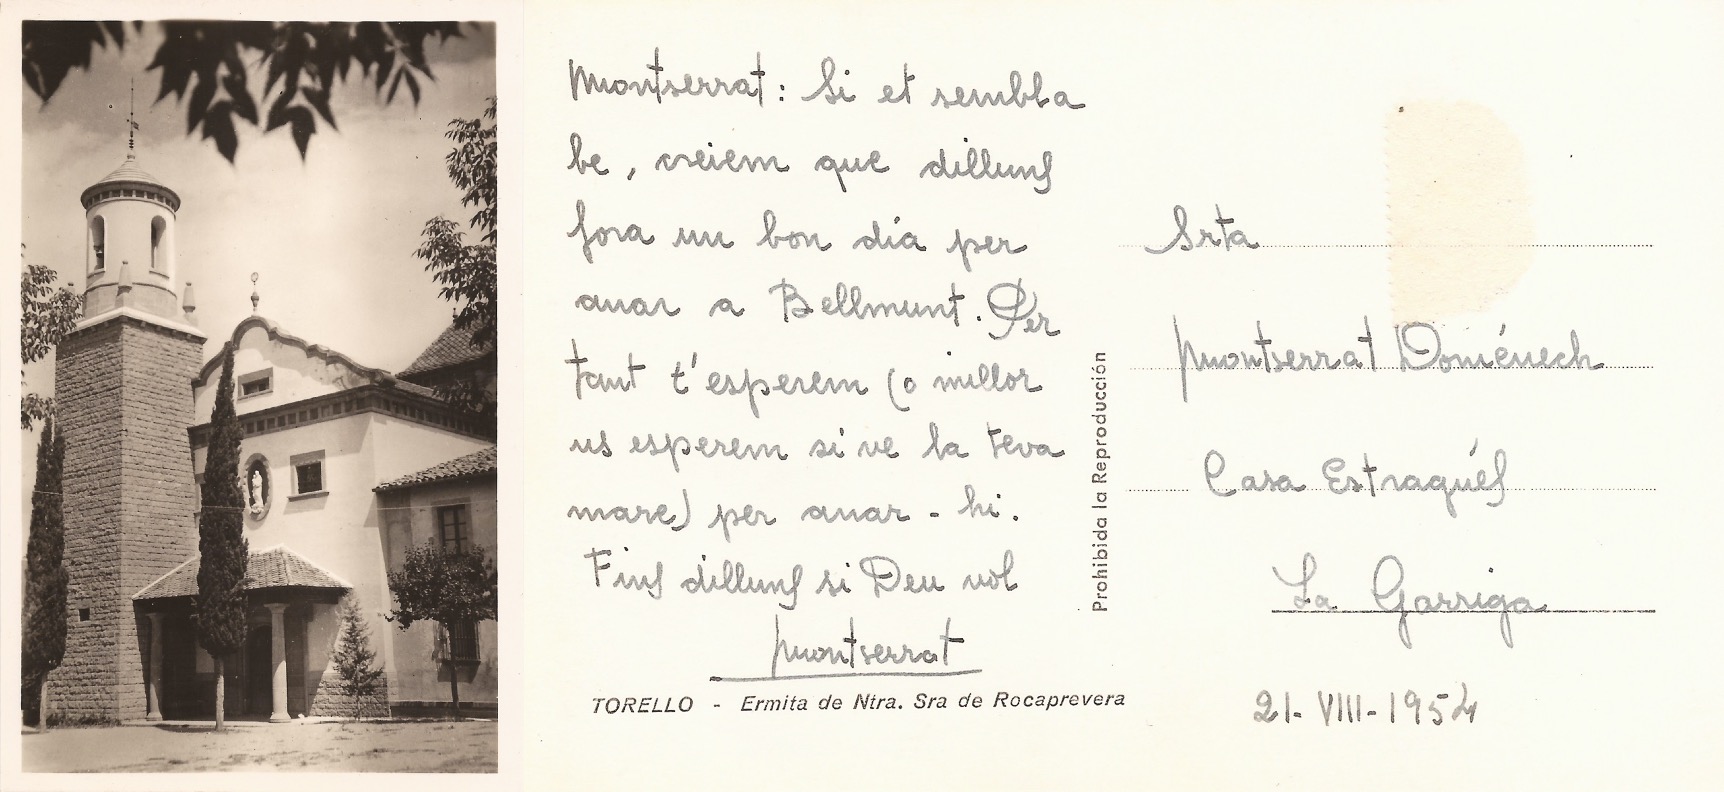 Montserrat: Si et sembla
be, creiem que dilluns
fora un bon dia per
anar a Bellmunt. Per
tant t'esperem (o millor
us esperem si ve la teva
mare) per anar-hi.
Fins dilluns si Deu vol
Montserrat
TORELLO - Ermita de Ntra. Sra de Rocaprevera
Prohibida la Reproducción
Srta
Montserrat Doménech
Casa Estraqués
La Garriga
21-VIII-1954